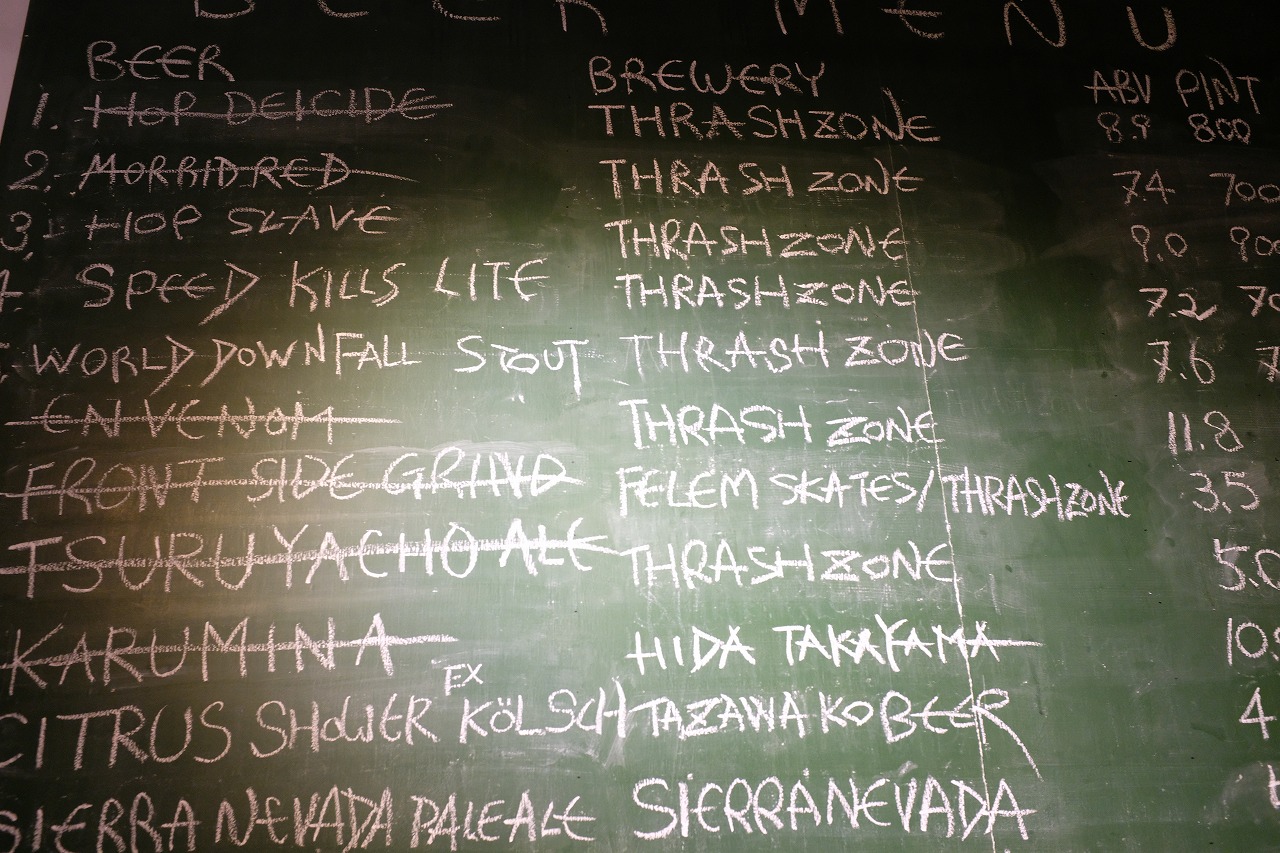 BEER MENU
BEER BREWERY ABV PINT
1. HOP DEICIDE THRASHZONE 8.9 800
2. MORBID RED THRASH ZONE 7.4 700
3. HOP SLAVE THRASHZONE 9.0 900
4. SPEED KILLS LITE THRASHZONE 7.2 70
WORLD DOWNFALL STOUT THRASH ZONE 7.6 7
ENVENOM THRASH ZONE 11.8
FRONT SIDE GRIND FELEM SKATES/THRASHZONE 3.5
TSURUYACHO ALE THRASHZONE 5.0
KARUMINA HIDA TAKAYAMA 10.
CITRUS SHOWER EX KÖLSCH TAZAWA KO BEER 4.
SIERRA NEVADA PALE ALE SIERRA NEVADA